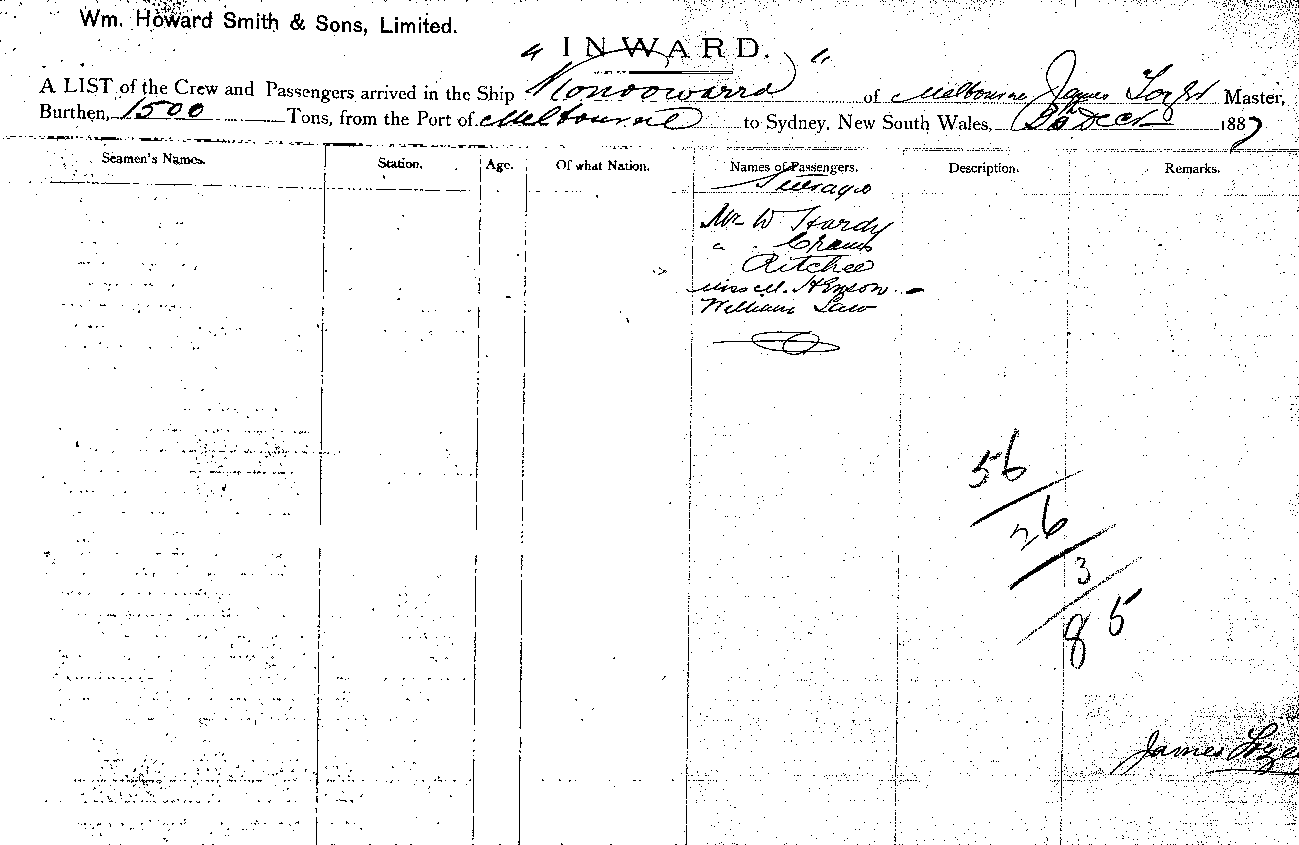 Wm. Howard Smith & Sons, Limited.
" INWARD. "
A LIST of the Crew and Passengers arrived in the Ship Konoowarra of Melbourne, James Master,
Burthen, 1500 Tons, from the Port of Melbourne to Sydney, New South Wales, 26th Decr 1887
Seamen's Names. Station. Age. Of what Nation. Names of Passengers. Description. Remarks.
Steerage
Mr W Hardy
" Cramb
Ritchee
Miss M. Henson
William Law
56
26
3
85
James